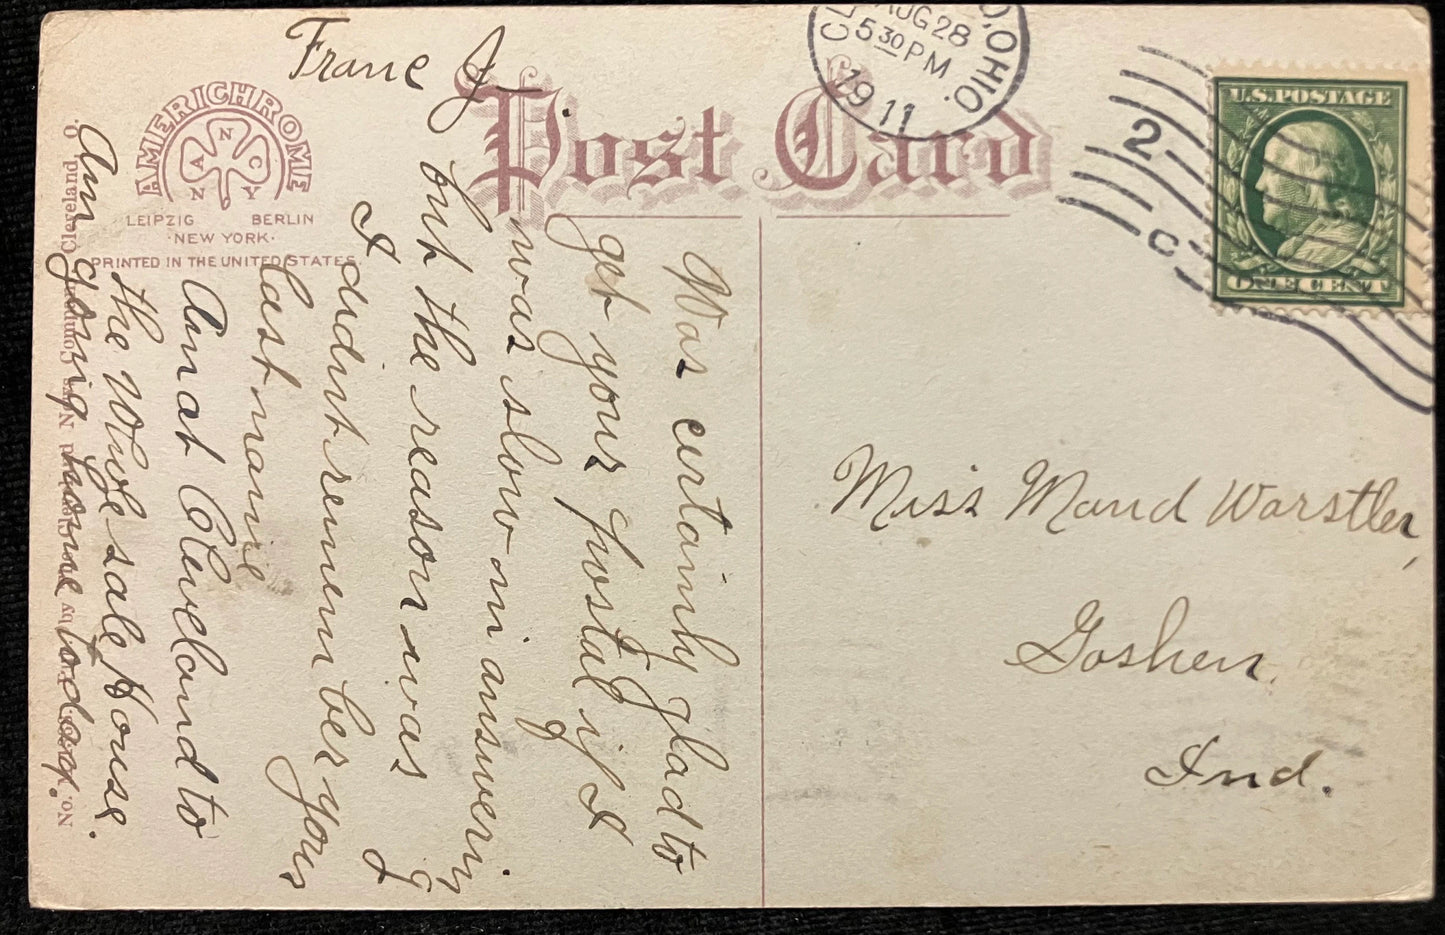 Post Card
AMERICHROME
A N C
N Y
LEIPZIG BERLIN
·NEW YORK·
PRINTED IN THE UNITED STATES.
AUG 28
5 30 PM
1911
O, OHIO.
2
C
U.S. POSTAGE
ONE CENT
Miss Maud Warstler,
Goshen,
Ind.
Was certainly glad to
get your postal if I
was slow in answering
but the reason was I
I didint remember your
last name
Am at Cleveland to
the Whole sale House.
Am going home today.
Franc J.